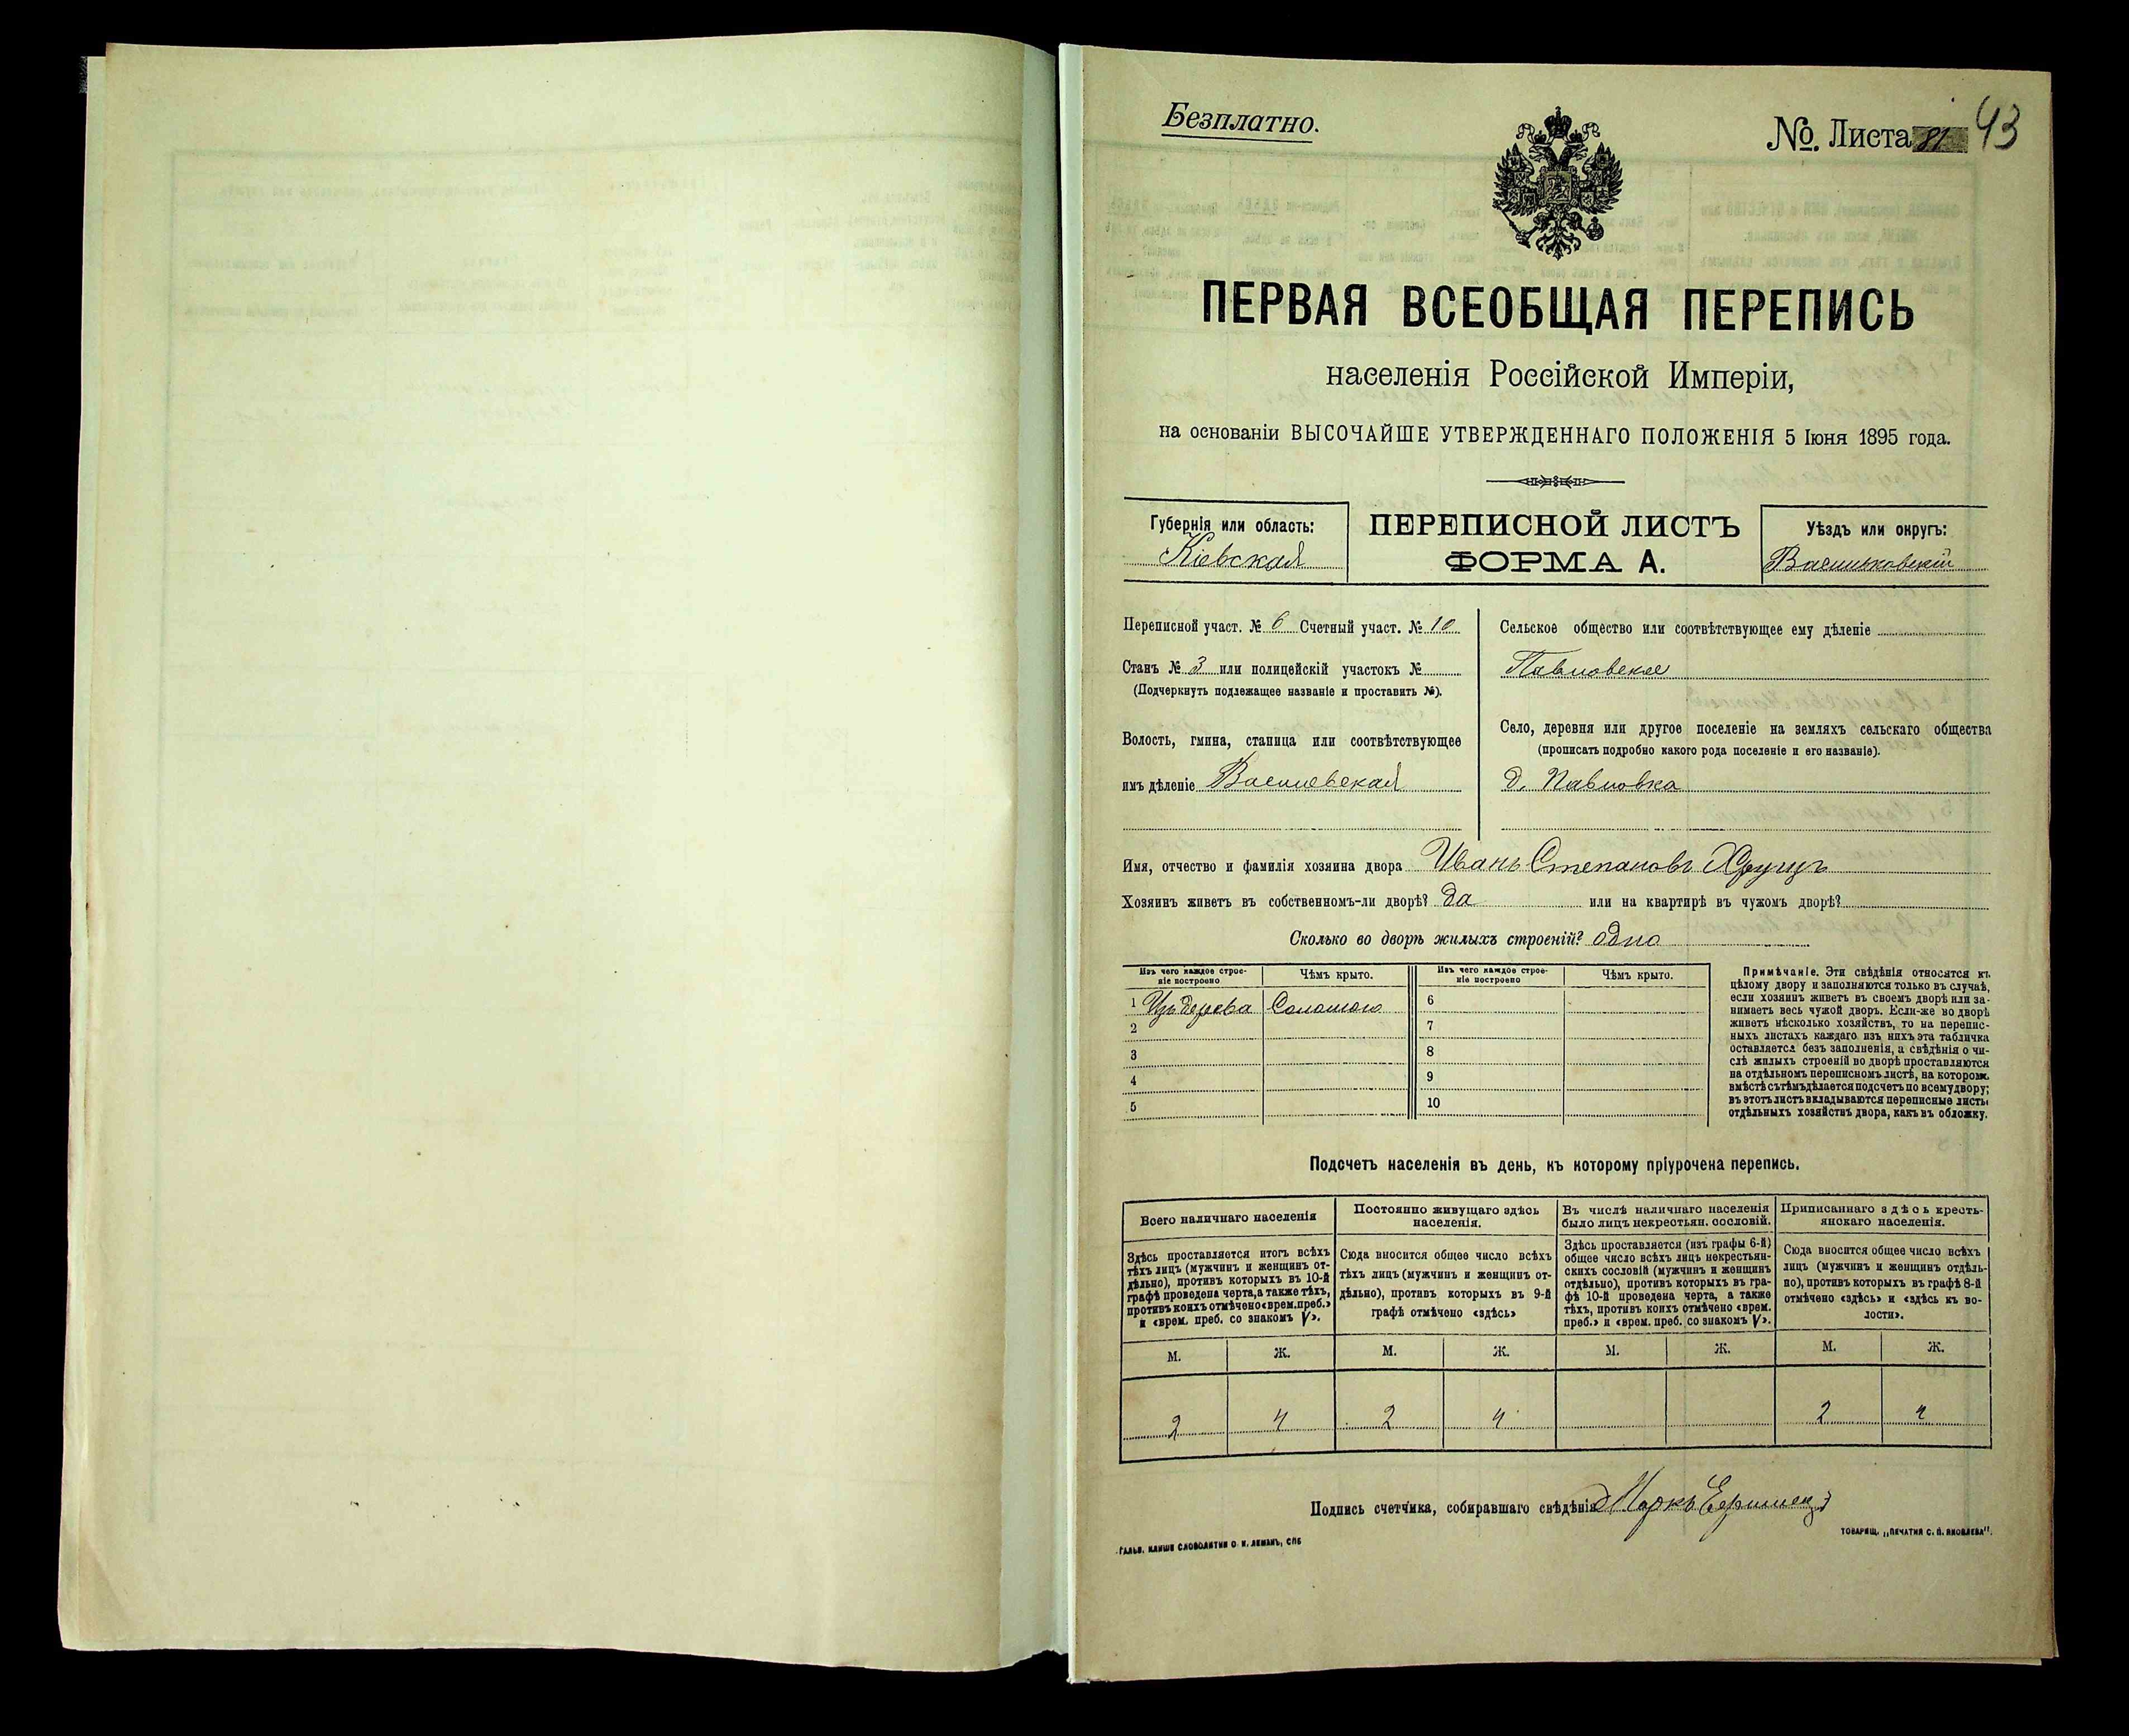 Безплатно.
№. Листа 81 43
ПЕРВАЯ ВСЕОБЩАЯ ПЕРЕПИСЬ
населенія Россійской Имперіи,
на основаніи ВЫСОЧАЙШЕ УТВЕРЖДЕННАГО ПОЛОЖЕНІЯ 5 Іюня 1895 года.
Губернія или область:
Кіевская
ПЕРЕПИСНОЙ ЛИСТЪ
ФОРМА А.
Уѣздъ или округъ:
Васильковскій
Переписной участ. № 6 Счетный участ. № 10
Станъ № 3 или полицейскій участокъ №
(Подчеркнуть подлежащее названіе и проставить №).
Волость, гмина, станица или соотвѣтствующее
имъ дѣленіе
Сельское общество или соотвѣтствующее ему дѣленіе
Павловское
Село, деревня или другое поселеніе на земляхъ сельскаго общества
(прописать подробно какого рода поселеніе и его названіе).
д. Павловка
Имя, отчество и фамилія хозяина двора Иванъ Степановъ Хрущъ
Хозяинъ живетъ въ собственномъ-ли дворѣ? да или на квартирѣ въ чужомъ дворѣ?
Сколько во дворѣ жилыхъ строеній? одно
Изъ чего каждое строе-
ніе построено
Чѣмъ крыто.
Изъ чего каждое строе-
ніе построено
Чѣмъ крыто.
1 Изъ дерева Соломою
2
3
4
5
6
7
8
9
10
Примѣчаніе. Эти свѣдѣнія относятся къ
цѣлому двору и заполняются только въ случаѣ,
если хозяинъ живетъ въ своемъ дворѣ или за-
нимаетъ весь чужой дворъ. Если-же во дворѣ
живетъ нѣсколько хозяйствъ, то на перепис-
ныхъ листахъ каждаго изъ нихъ эта табличка
оставляется безъ заполненія, а свѣдѣнія о чи-
слѣ жилыхъ строеній во дворѣ проставляются
на отдѣльномъ переписномъ листѣ, на которомъ
вмѣстѣ съ тѣмъ дѣлается подсчетъ по всему двору;
въ этотъ листъ вкладываются переписные листы
отдѣльныхъ хозяйствъ двора, какъ въ обложку.
Подсчетъ населенія въ день, къ которому пріурочена перепись.
Всего наличнаго населенія
Здѣсь проставляется итогъ всѣхъ
тѣхъ лицъ (мужчинъ и женщинъ от-
дѣльно), противъ которыхъ въ 10-й
графѣ проведена черта, а также тѣхъ,
противъ коихъ отмѣчено «врем. преб.»
и «врем. преб. со знакомъ V».
Постоянно живущаго здѣсь
населенія.
Сюда вносится общее число всѣхъ
тѣхъ лицъ (мужчинъ и женщинъ от-
дѣльно), противъ которыхъ въ 9-й
графѣ отмѣчено «здѣсь»
Въ числѣ наличнаго населенія
было лицъ некрестьян. сословій.
Здѣсь проставляется (изъ графы 6-й)
общее число всѣхъ лицъ некрестьян-
скихъ сословій (мужчинъ и женщинъ
отдѣльно), противъ которыхъ въ гра-
фѣ 10-й проведена черта, а также
тѣхъ, противъ коихъ отмѣчено «врем.
преб.» и «врем. преб. со знакомъ V».
Приписаннаго здѣсь кресть-
янскаго населенія.
Сюда вносится общее число всѣхъ
лицъ (мужчинъ и женщинъ отдѣль-
но), противъ которыхъ въ графѣ 8-й
отмѣчено «здѣсь» и «здѣсь къ во-
лости».
М. Ж. М. Ж. М. Ж. М. Ж.
2 4 2 4 2 4
Подпись счетчика, собиравшаго свѣдѣнія Маркъ
ГАЛЬВ. КЛИШЕ СЛОВОЛИТНИ О. И. ЛЕМАНЪ, СПБ
ТОВАРИЩ. „ПЕЧАТНЯ С. П. ЯКОВЛЕВА".